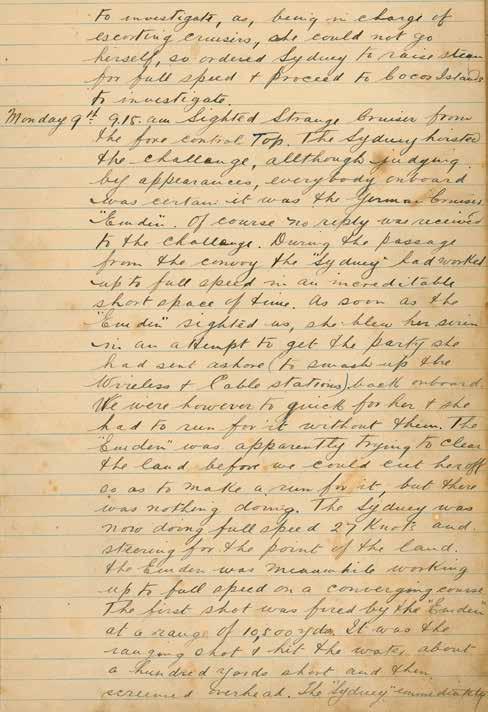 to investigate, as, being in charge of
escorting cruisers, she could not go
herself, so ordered Sydney to raise steam
for full speed + proceed to Cocos Islands
to investigate.
Monday 9th 9.15. am Sighted Strange Cruiser from
the fore control Top. The Sydney hoisted
the challenge, allthough judging
by appearances, everybody onboard
was certain it was the German Cruiser
"Emden". Of course no reply was received
to the challenge. During the passage
from the convoy the "Sydney" had worked
up to full speed in an increditable
short space of time. As soon as the
"Emden" sighted us, she blew her siren
in an attempt to get the party she
had sent ashore (to smash up the
Wireless + Cable stations) back onboard.
We were however to quick for her + she
had to run for it without them. The
"Emden" was apparently trying to clear
the land before we could cut her off
so as to make a run for it, but there
was nothing doing. The Sydney was
now doing full speed 27 Knots and
steering for the point of the land.
the Emden was meanwhile working
up to full speed on a converging course
The first shot was fired by the "Emden"
at a range of 10,500 yds. It was the
ranging shot + hit the water about
a hundred yards short and then
screamed overhead. The "Sydney" immediately